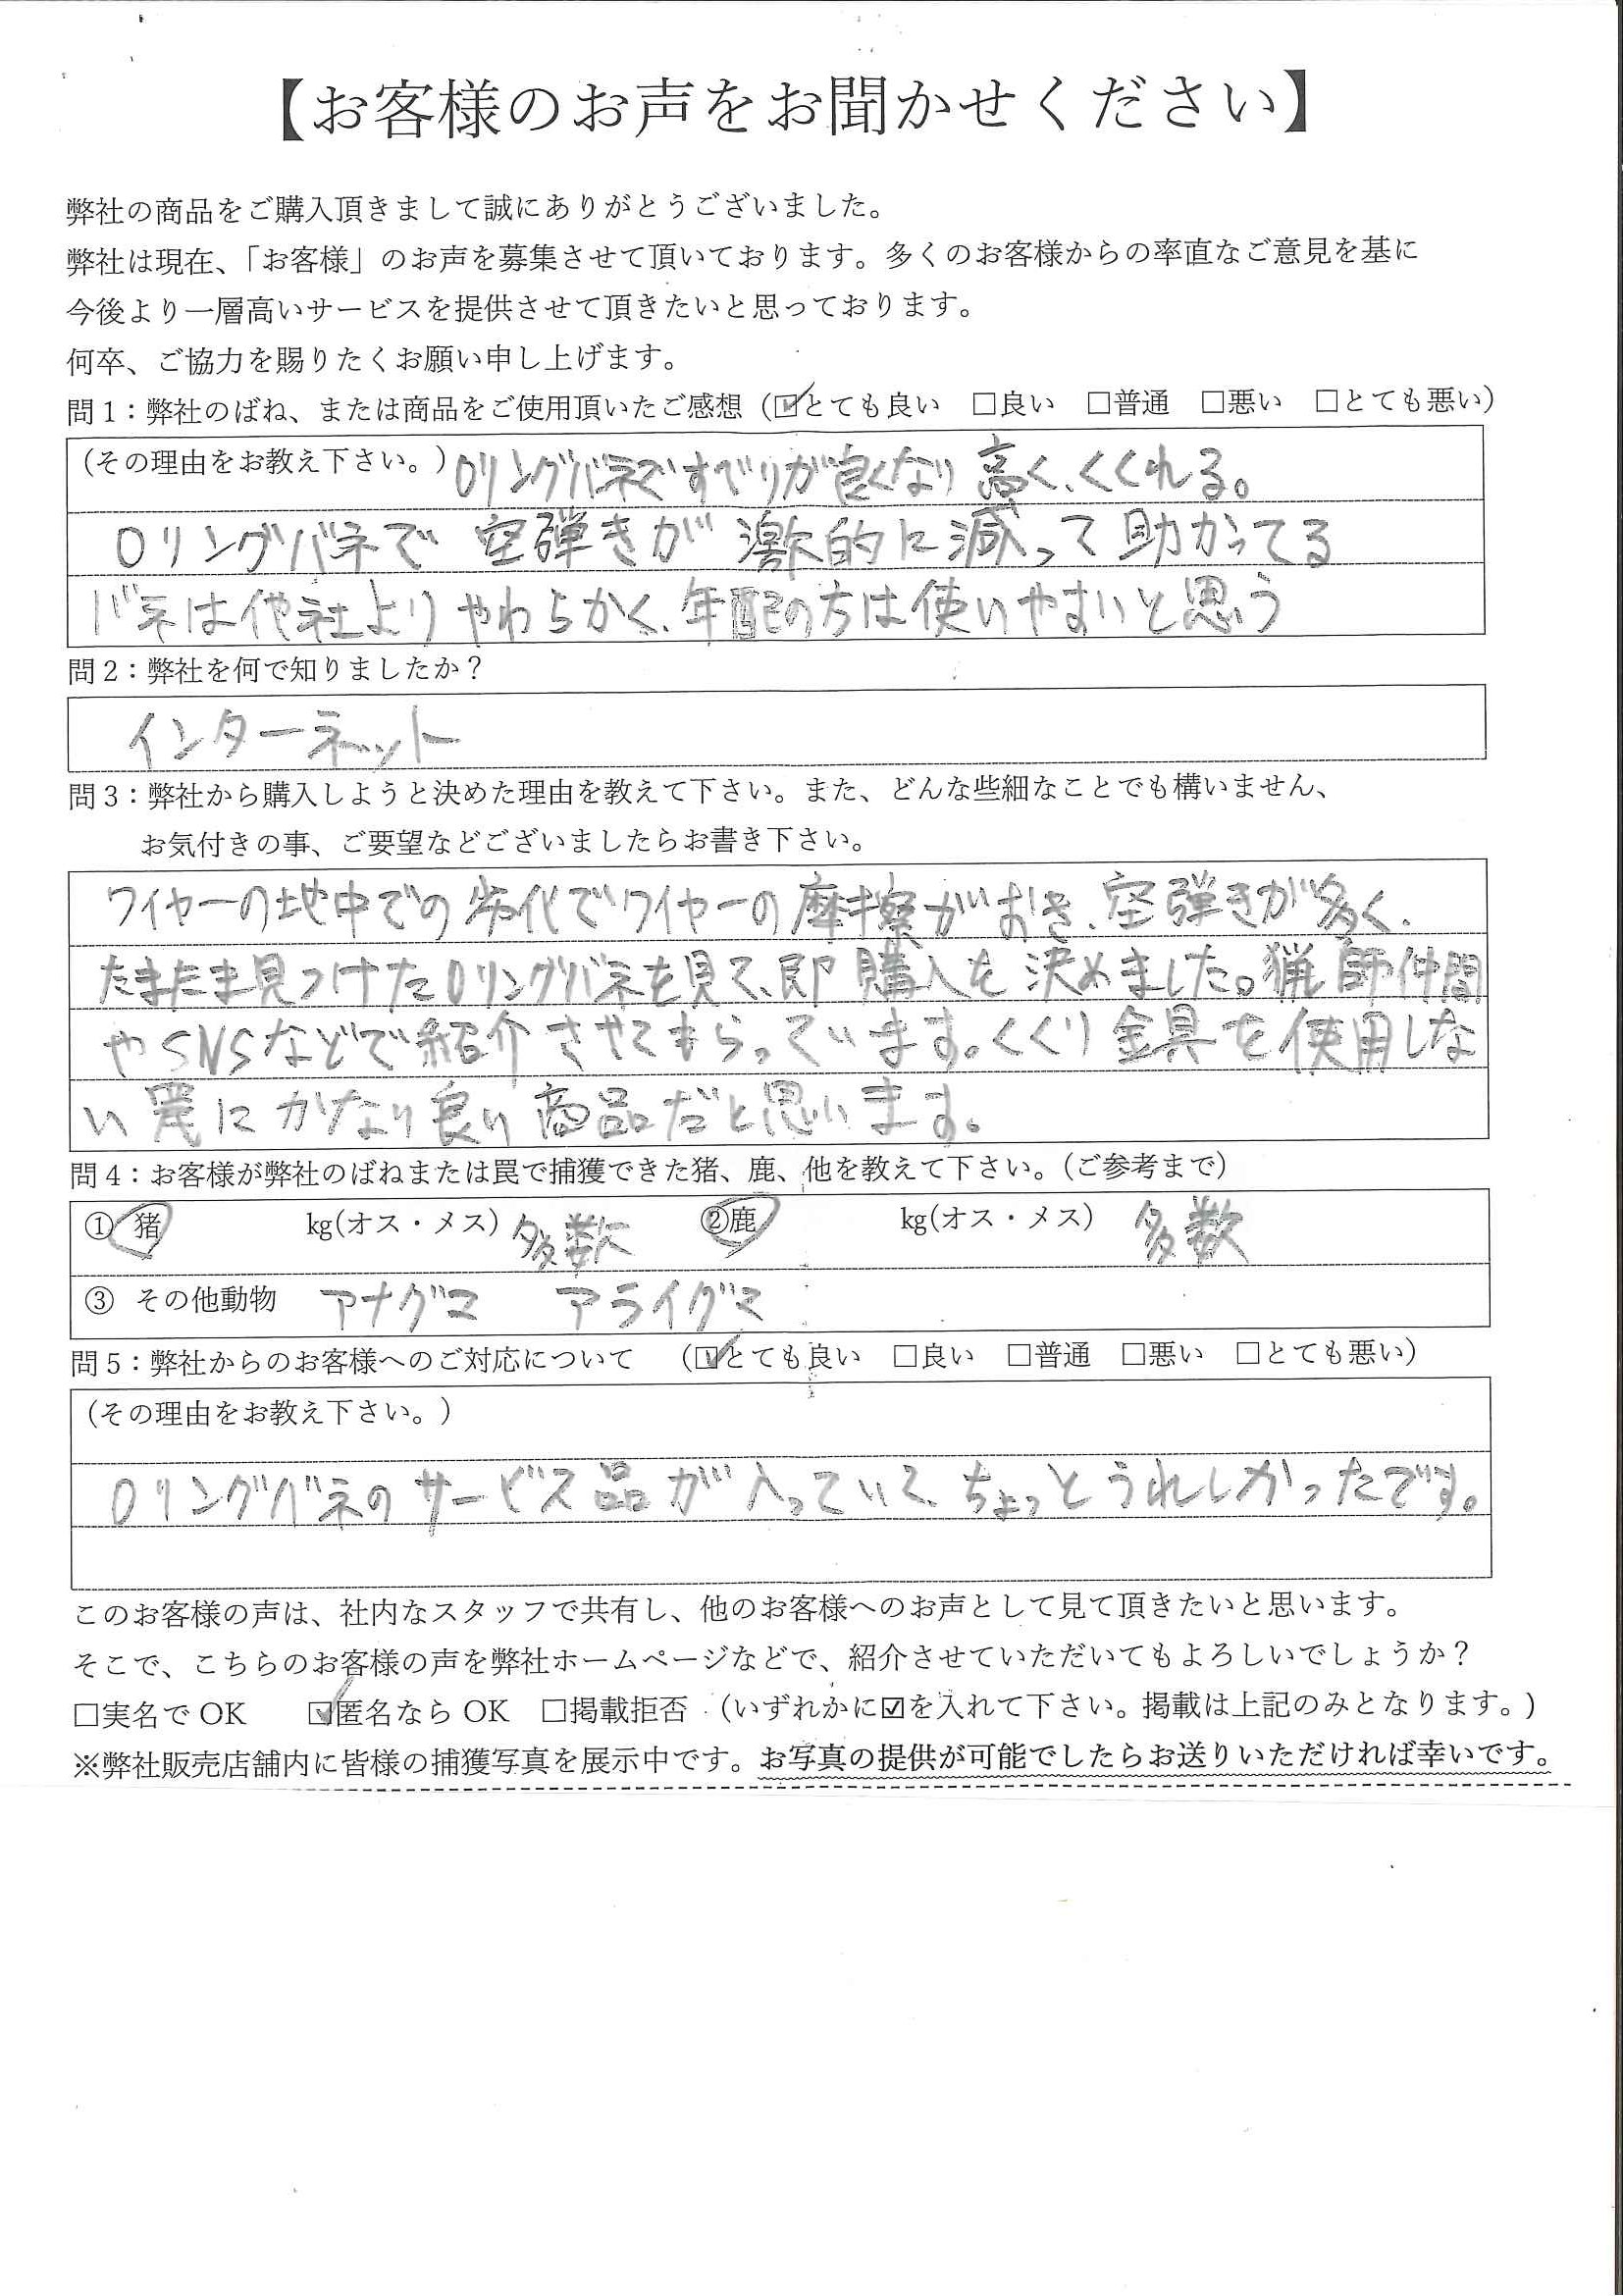 【お客様のお声をお聞かせください】
弊社の商品をご購入頂きまして誠にありがとうございました。
弊社は現在、「お客様」のお声を募集させて頂いております。多くのお客様からの率直なご意見を基に
今後より一層高いサービスを提供させて頂きたいと思っております。
何卒、ご協力を賜りたくお願い申し上げます。
問1：弊社のばね、または商品をご使用頂いたご感想（☑とても良い　□良い　□普通　□悪い　□とても悪い）
（その理由をお教え下さい。）Oリングバネですべりが良くなり高く、くくれる。
Oリングバネで空弾きが激的に減って助かってる
バネは他社よりやわらかく、年配の方は使いやすいと思う
問2：弊社を何で知りましたか？
インターネット
問3：弊社から購入しようと決めた理由を教えて下さい。また、どんな些細なことでも構いません、
お気付きの事、ご要望などございましたらお書き下さい。
ワイヤーの地中での 代でワイヤーの摩擦がおき、空弾きが多く、
たまたま見つけたOリングバネを見て、即購入を決めました。猟師仲間
やSNSなどで紹介させてもらっています。くくり金具を使用しな
い罠にかなり良い商品だと思います。
問4：お客様が弊社のばねまたは罠で捕獲できた猪、鹿、他を教えて下さい。（ご参考まで）
① 猪　㎏(オス・メス) 多数　②鹿　㎏(オス・メス) 多数
③ その他動物　アナグマ　アライグマ
問5：弊社からのお客様へのご対応について　（☑とても良い　□良い　□普通　□悪い　□とても悪い）
（その理由をお教え下さい。）
Oリングバネのサービス品が入っていて、ちょっとうれしかったです。
このお客様の声は、社内なスタッフで共有し、他のお客様へのお声として見て頂きたいと思います。
そこで、こちらのお客様の声を弊社ホームページなどで、紹介させていただいてもよろしいでしょうか？
□実名でOK　☑匿名ならOK　□掲載拒否　（いずれかに☑を入れて下さい。掲載は上記のみとなります。）
※弊社販売店舗内に皆様の捕獲写真を展示中です。お写真の提供が可能でしたらお送りいただければ幸いです。